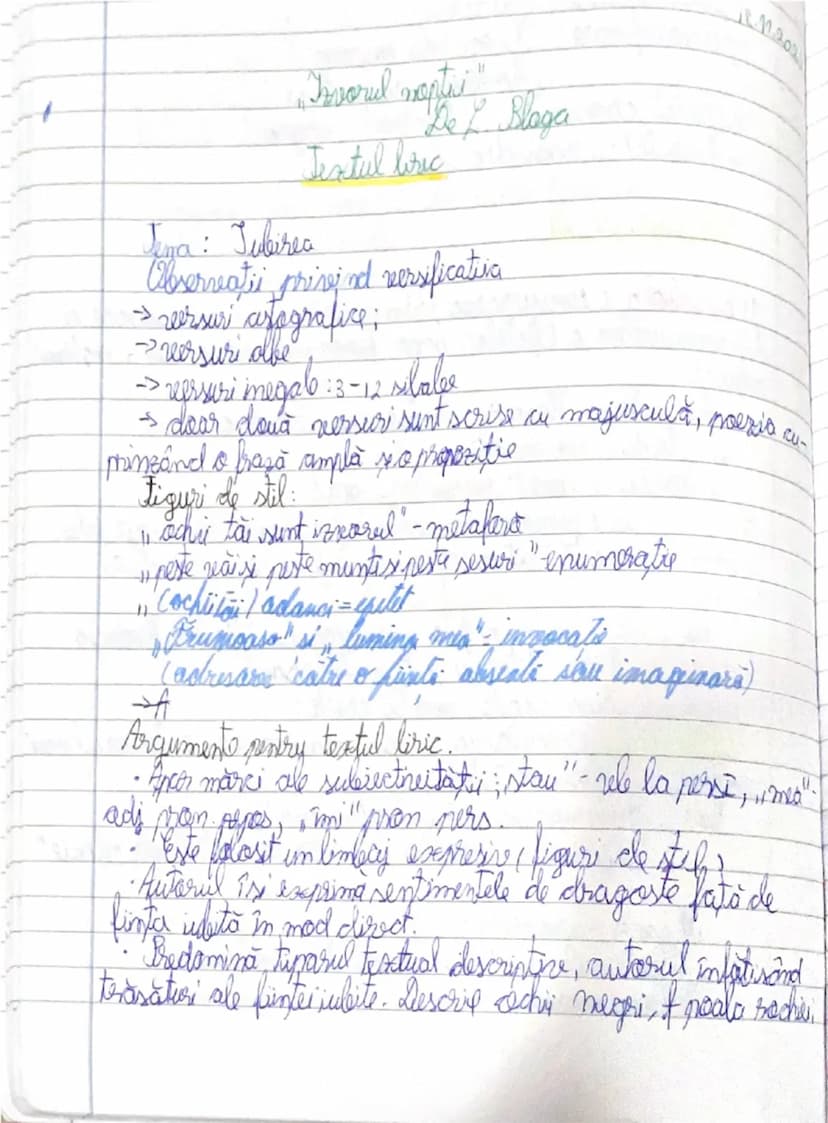 18.11.202
„Izvorul nopții"
De L Blaga
Textul liric
Tema : Iubirea
Observații privind versificația
→ versuri astografice;
→ versuri albe
→ versuri inegale : 3-12 silabe
→ doar două versuri sunt scrise cu majusculă, poezia cu-
prinzând o frază amplă și o propoziție
Figuri de stil:
„ ochii tăi sunt izvorul" - metaforă
„ peste văi și peste munți și peste șesuri" enumerație
„ (ochii tăi) adânci = epitet
„Frumoaso" și „ lumina mea" - invocație
(adresare către o ființă absentă sau imaginară)
→ A
Argumente pentru textul liric.
· Apar mărci ale subiectivității: „stau" - vb la pers I, „mea" -
adj pron. pos, „îmi" pron pers.
· Este folosit un limbaj expresiv ( figuri de stil )
· Autorul își exprimă sentimentele de dragoste față de
ființa iubită în mod direct.
· Predomină tiparul textual descriptiv, autorul înfățișând
trăsături ale ființei iubite. Descrie ochii negri, poala rochiei